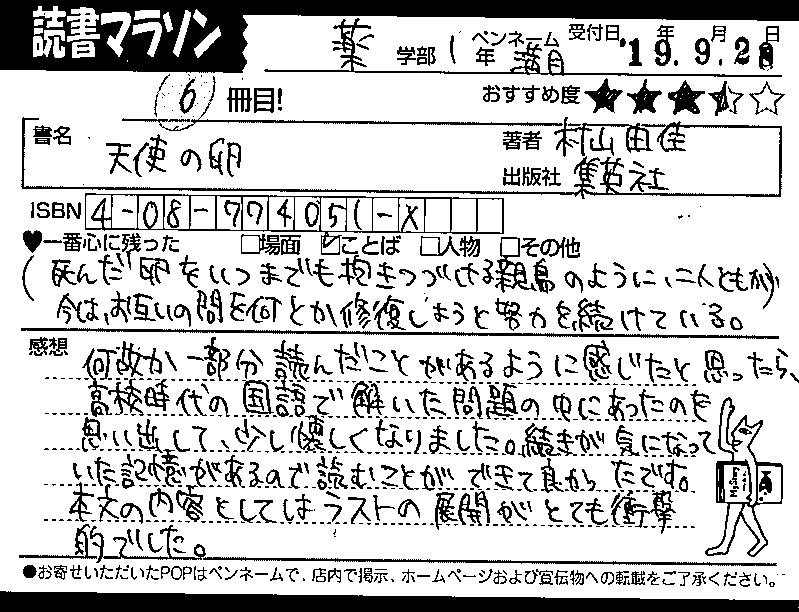 読書マラソン
薬 学部 1 年 ペンネーム 満月 受付日 '19.年9.月28日
6 冊目! おすすめ度
書名 天使の卵
著者 村山由佳
出版社 集英社
ISBN 4-08-774051-X
♥一番心に残った □場面 ☑ことば □人物 □その他
(死んだ卵をいつまでも抱きつづける親鳥のように、二人ともが)
今は、お互いの間を何とか修復しようと努力を続けている。
感想
何故か一部分読んだことがあるように感じたと思ったら、
高校時代の国語で解いた問題の中にあったのを
思い出して、少し懐しくなりました。続きが気になって
いた記憶があるので読むことができて良かったです。
本文の内容としてはラストの展開がとても衝撃
的でした。
●お寄せいただいたPOPはペンネームで、店内で掲示、ホームページおよび宣伝物への転載をご了承ください。